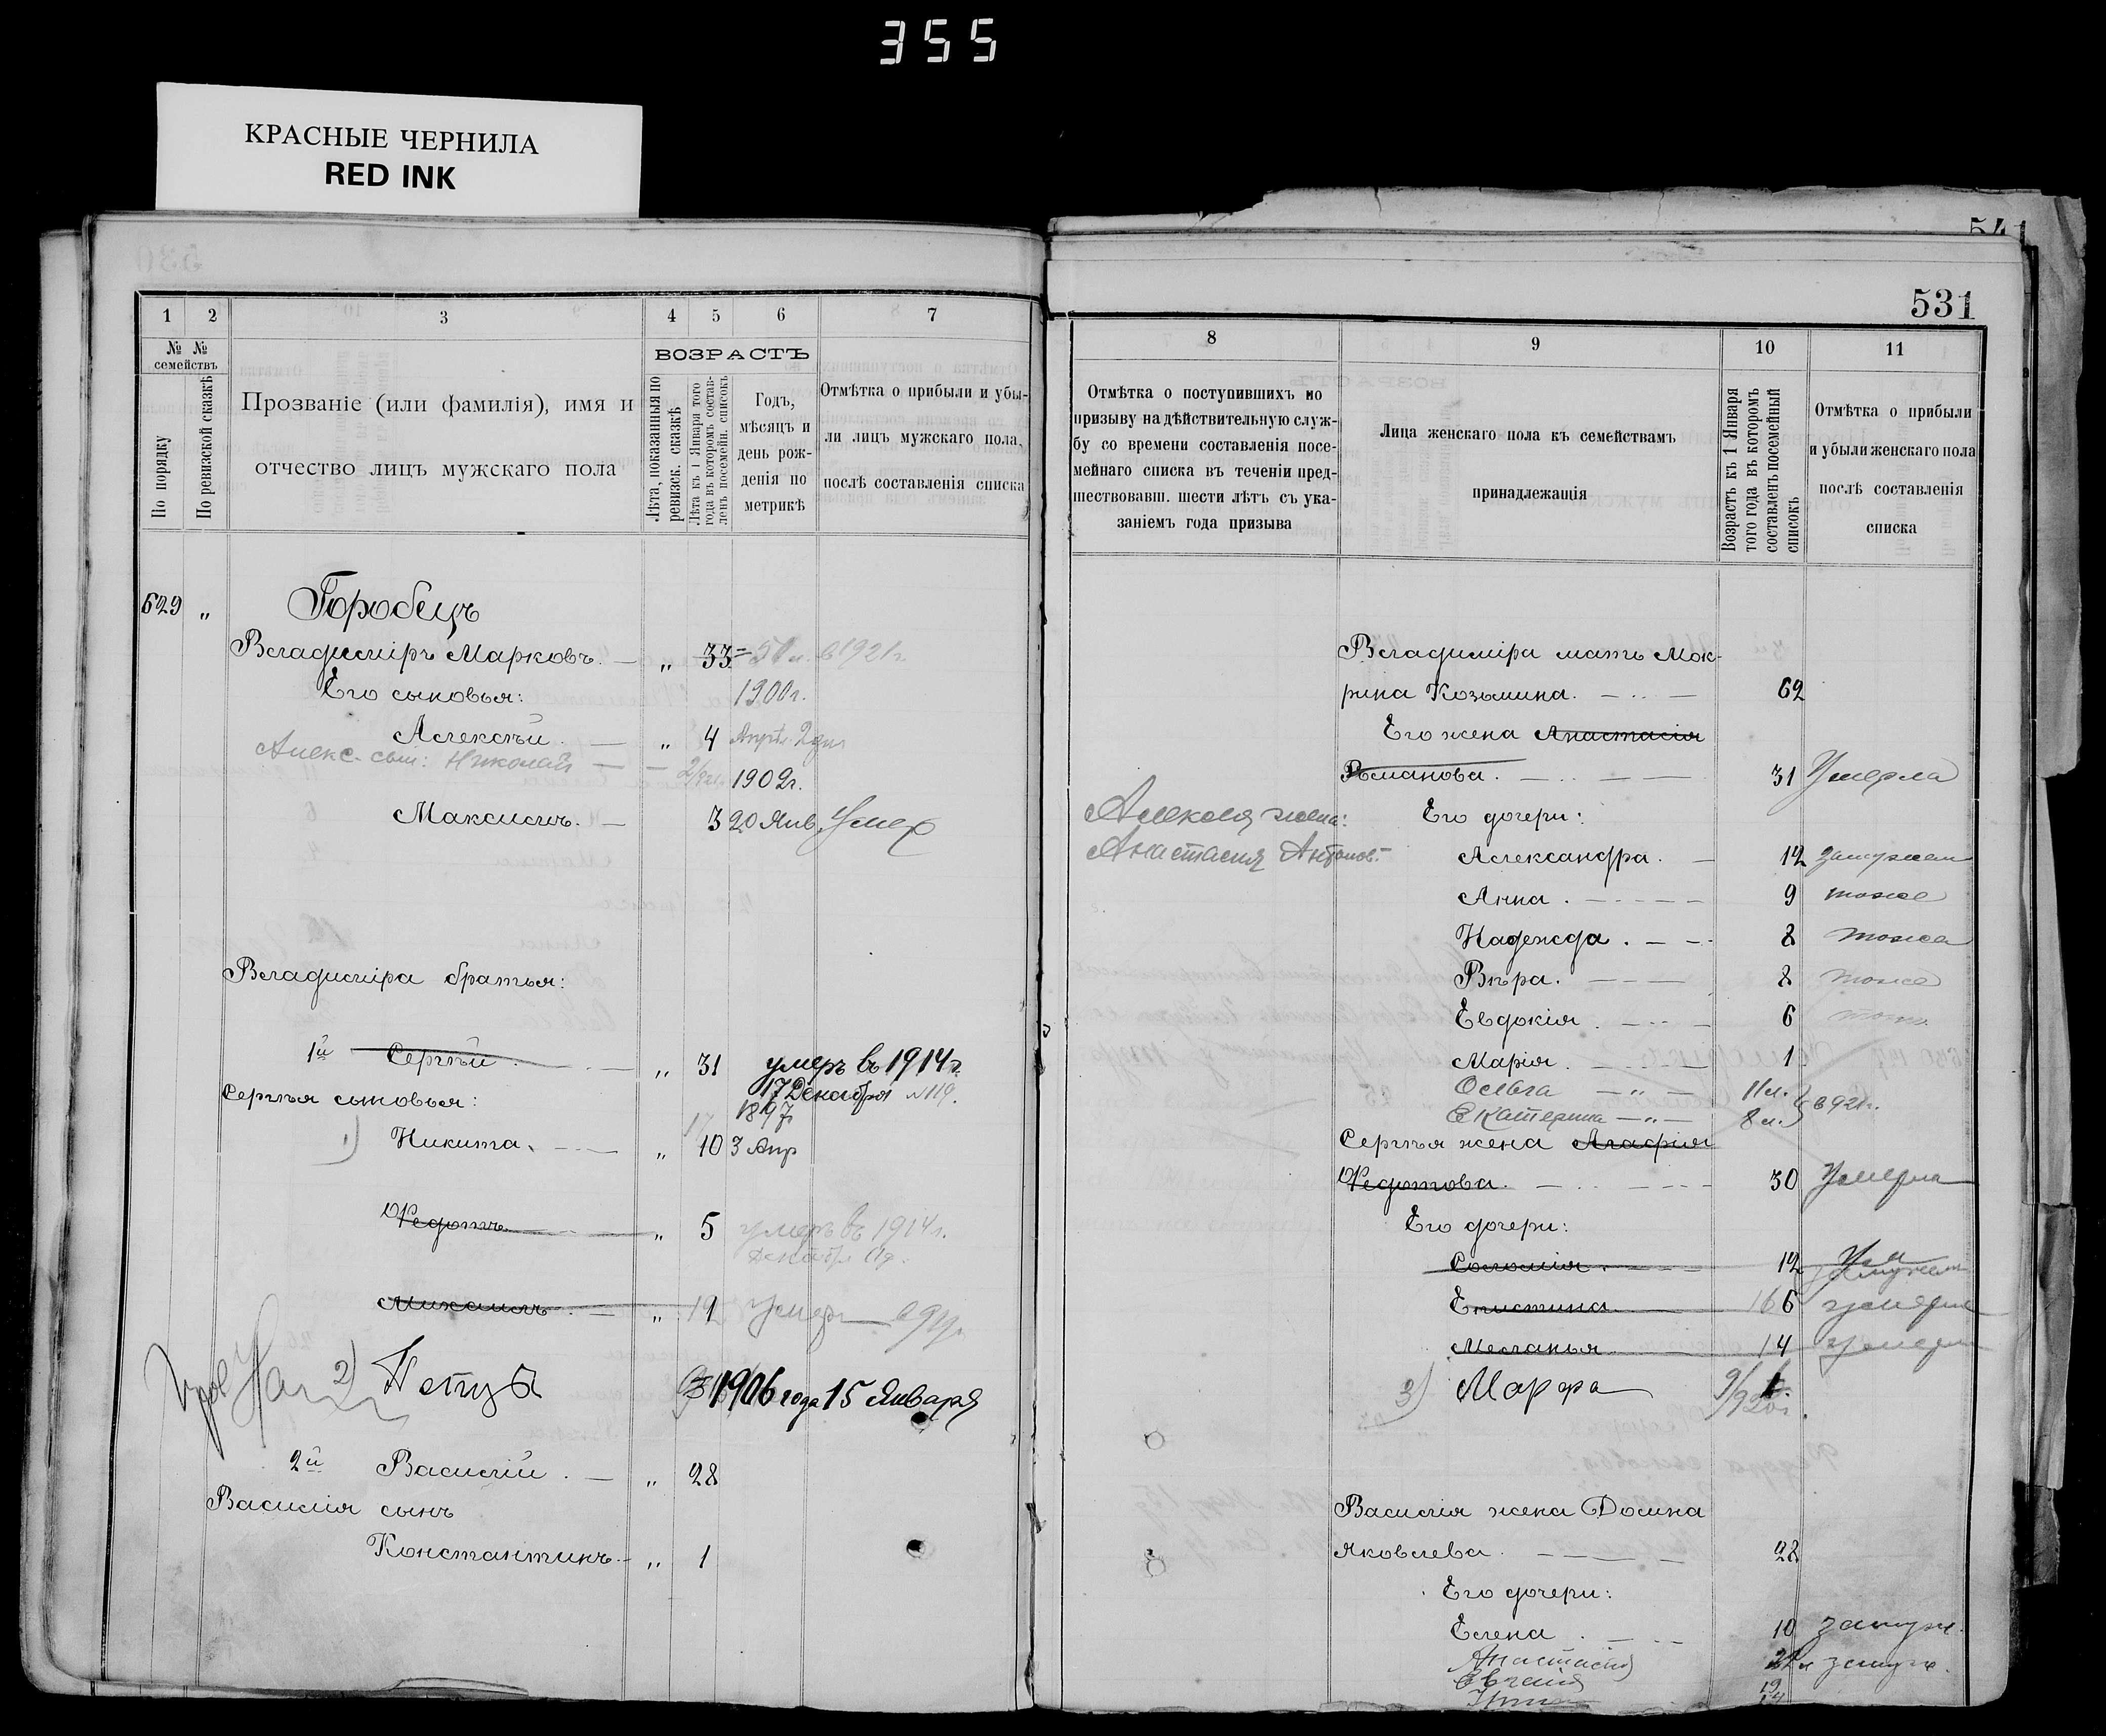 355
КРАСНЫЕ ЧЕРНИЛА
RED INK
541
531
1 2 3 4 5 6 7
№ № семействъ
По порядку
По ревизской сказкѣ
Прозваніе (или фамилія), имя и
отчество лицъ мужскаго пола
ВОЗРАСТЪ
Лѣта, показанныя по
ревизск. сказкѣ
Лѣта къ 1 Января того
года въ которомъ состав-
ленъ посемейн. списокъ
Годъ,
мѣсяцъ и
день рож-
денія по
метрикѣ
Отмѣтка о прибыли и убы-
ли лицъ мужскаго пола,
послѣ составленія списка
629 „ Горобецъ
Владиміръ Марковъ. — „ 33 = 51 л. в 1921 г.
Его сыновья: 1900 г.
Алексѣй. — „ 4 Апрѣл. 2 дня
Алекс. сын: Николай — —
1902 г.
Максимъ. — 3 20 Янв. Умер
Владиміра братья:
1й Сергѣй. — „ 31 умеръ въ 1914 г.
17 Декабря №119.
Сергѣя сыновья: 1897 г.
1) Никита. — „ 10 3 Апр
17
Ѳедотъ. „ 5 умеръ въ 1914 г.
Декабр.
Михаилъ. — „ 1 Умер
2) Петръ 1906 года 15 Января
2й Василій. — „ 28
Василія сынъ
Константинъ. - „ 1
8 9 10 11
Отмѣтка о поступившихъ по
призыву на дѣйствительную служ-
бу со времени составленія посе-
мейнаго списка въ теченіи пред-
шествовавш. шести лѣтъ съ ука-
заніемъ года призыва
Лица женскаго пола къ семействамъ
принадлежащія
Возрастъ къ 1 Января
того года въ которомъ
составленъ посемейный
списокъ
Отмѣтка о прибыли
и убыли женскаго пола
послѣ составленія
списка
Владиміра мать Мок-
рина Козьмина. — .. — 62
Его жена Анастасія
Романова. — .. — — 31 Умерла
Алексея жена: Его дочери:
Анастасия Антонов. - Александра. — 12 замужем
Анна. — — — — 9 тоже
Надежда. — — 8 тоже
Вѣра. — — — 8 тоже
Евдокія. — .. — 6 тоже
Марія. — 1
Ольга — „ — 11 л.
Екатерина — „ — 8 л. } в 921 г.
Сергѣя жена Агафія
Ѳедотова. — .. — — — 30 Умерла
Его дочери:
Соломія. — 12 замужем
Епистина. 16 6 умерла
Меланья. 14 умерла
3) Марфа 9/920 г.
Василія жена Домна
Яковлева. — — — — 28
Его дочери:
Елена. — .. 10 замуж.
Анастасия замуж.
Евгения 19